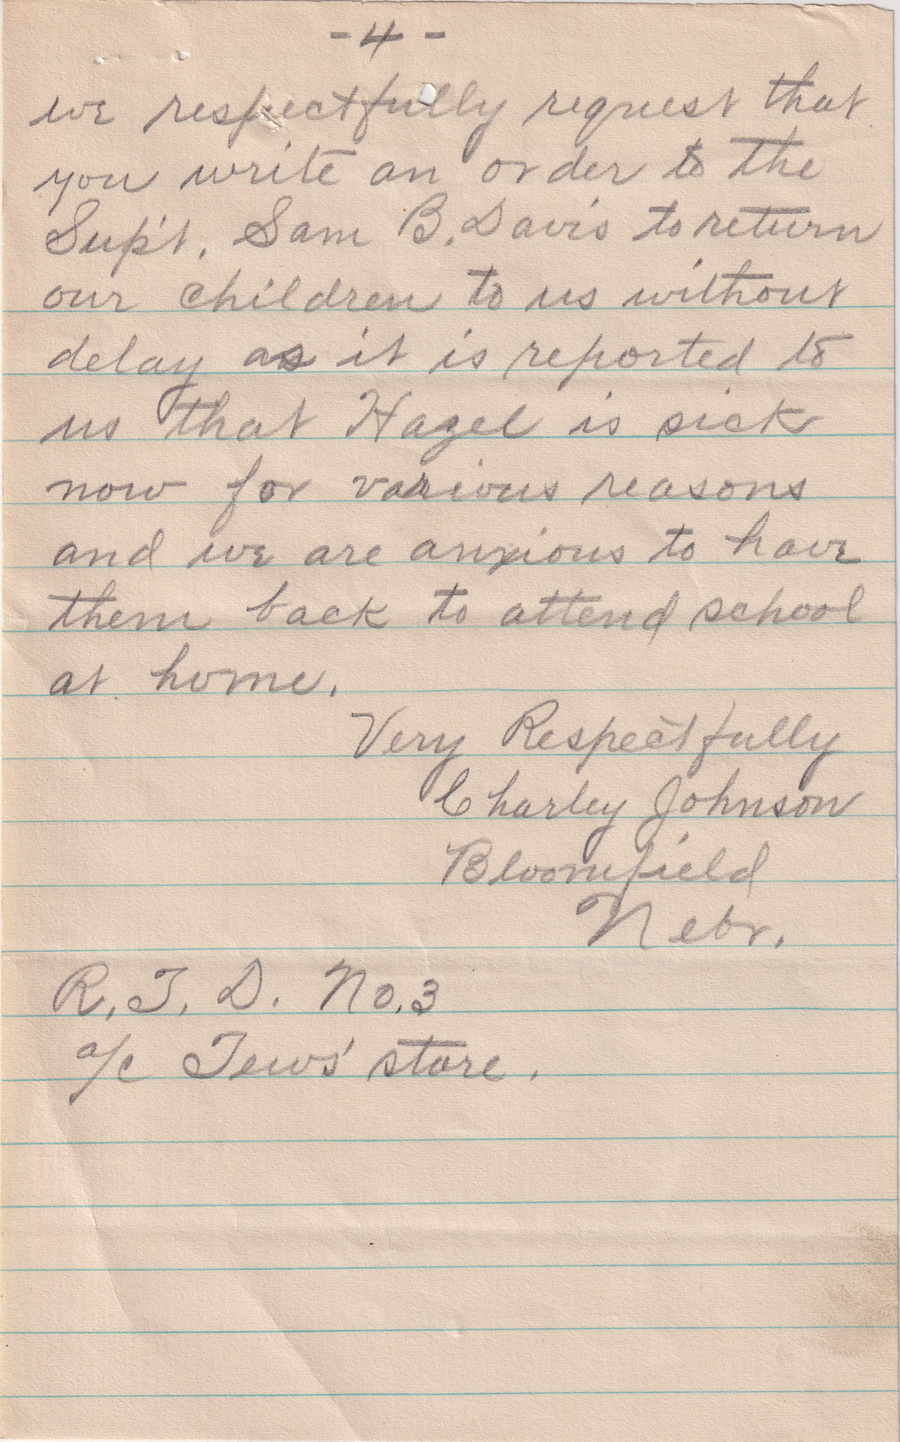 -4-
we respectfully request that
you write an order to the
Sup't. Sam B. Davis to return
our children to us without
delay as it is reported to
us that Hazel is sick
now for various reasons
and we are anxious to have
them back to attend school
at home.
Very Respectfully
Charley Johnson
Bloomfield
Nebr.
R.F.D. No. 3
a/c Tews' store.